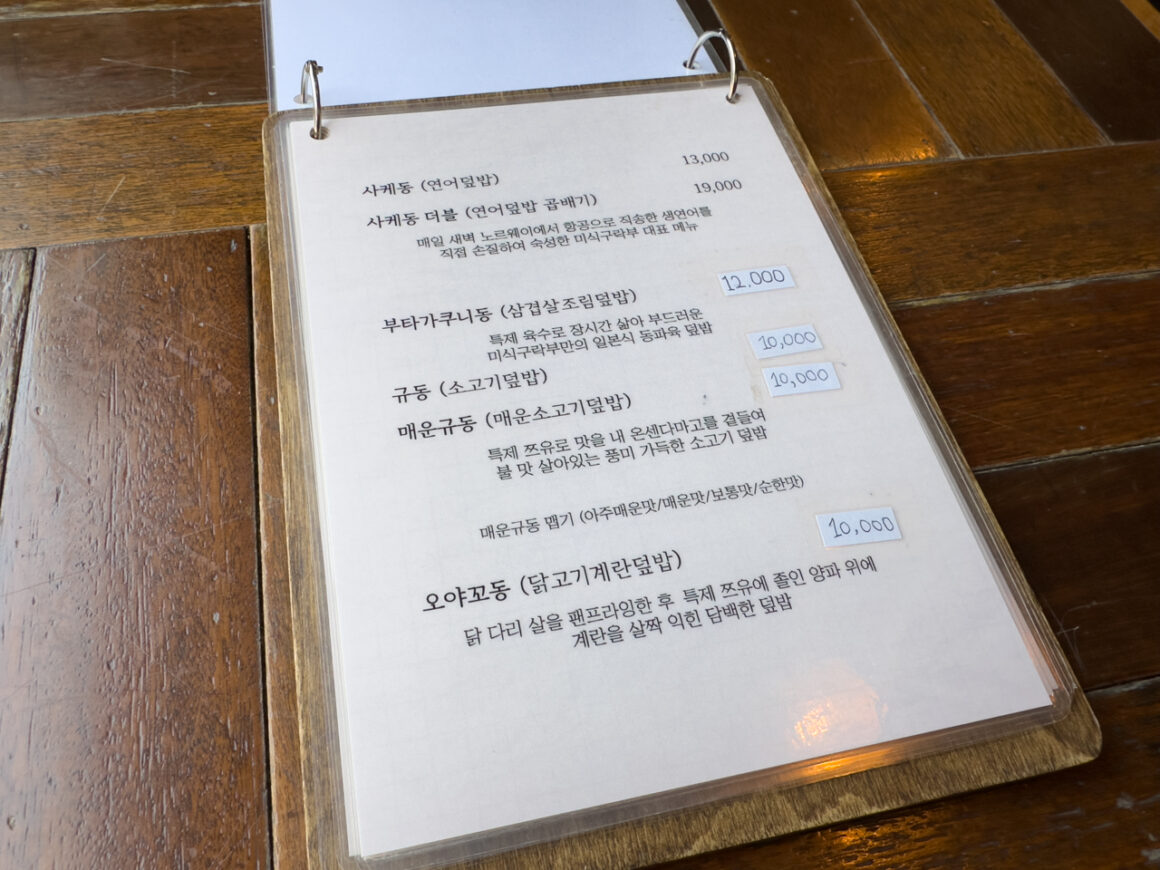 사케동 (연어덮밥) 13,000
사케동 더블 (연어덮밥 곱배기) 19,000
매일 새벽 노르웨이에서 항공으로 직송한 생연어를
직접 손질하여 숙성한 미식구락부 대표 메뉴
부타가쿠니동 (삼겹살조림덮밥) 12,000
특제 육수로 장시간 삶아 부드러운
미식구락부만의 일본식 동파육 덮밥
규동 (소고기덮밥) 10,000
매운규동 (매운소고기덮밥) 10,000
특제 쯔유로 맛을 내 온센다마고를 곁들여
불 맛 살아있는 풍미 가득한 소고기 덮밥
매운규동 맵기 (아주매운맛/매운맛/보통맛/순한맛)
오야꼬동 (닭고기계란덮밥) 10,000
닭 다리 살을 팬프라잉한 후 특제 쯔유에 졸인 양파 위에
계란을 살짝 익힌 담백한 덮밥